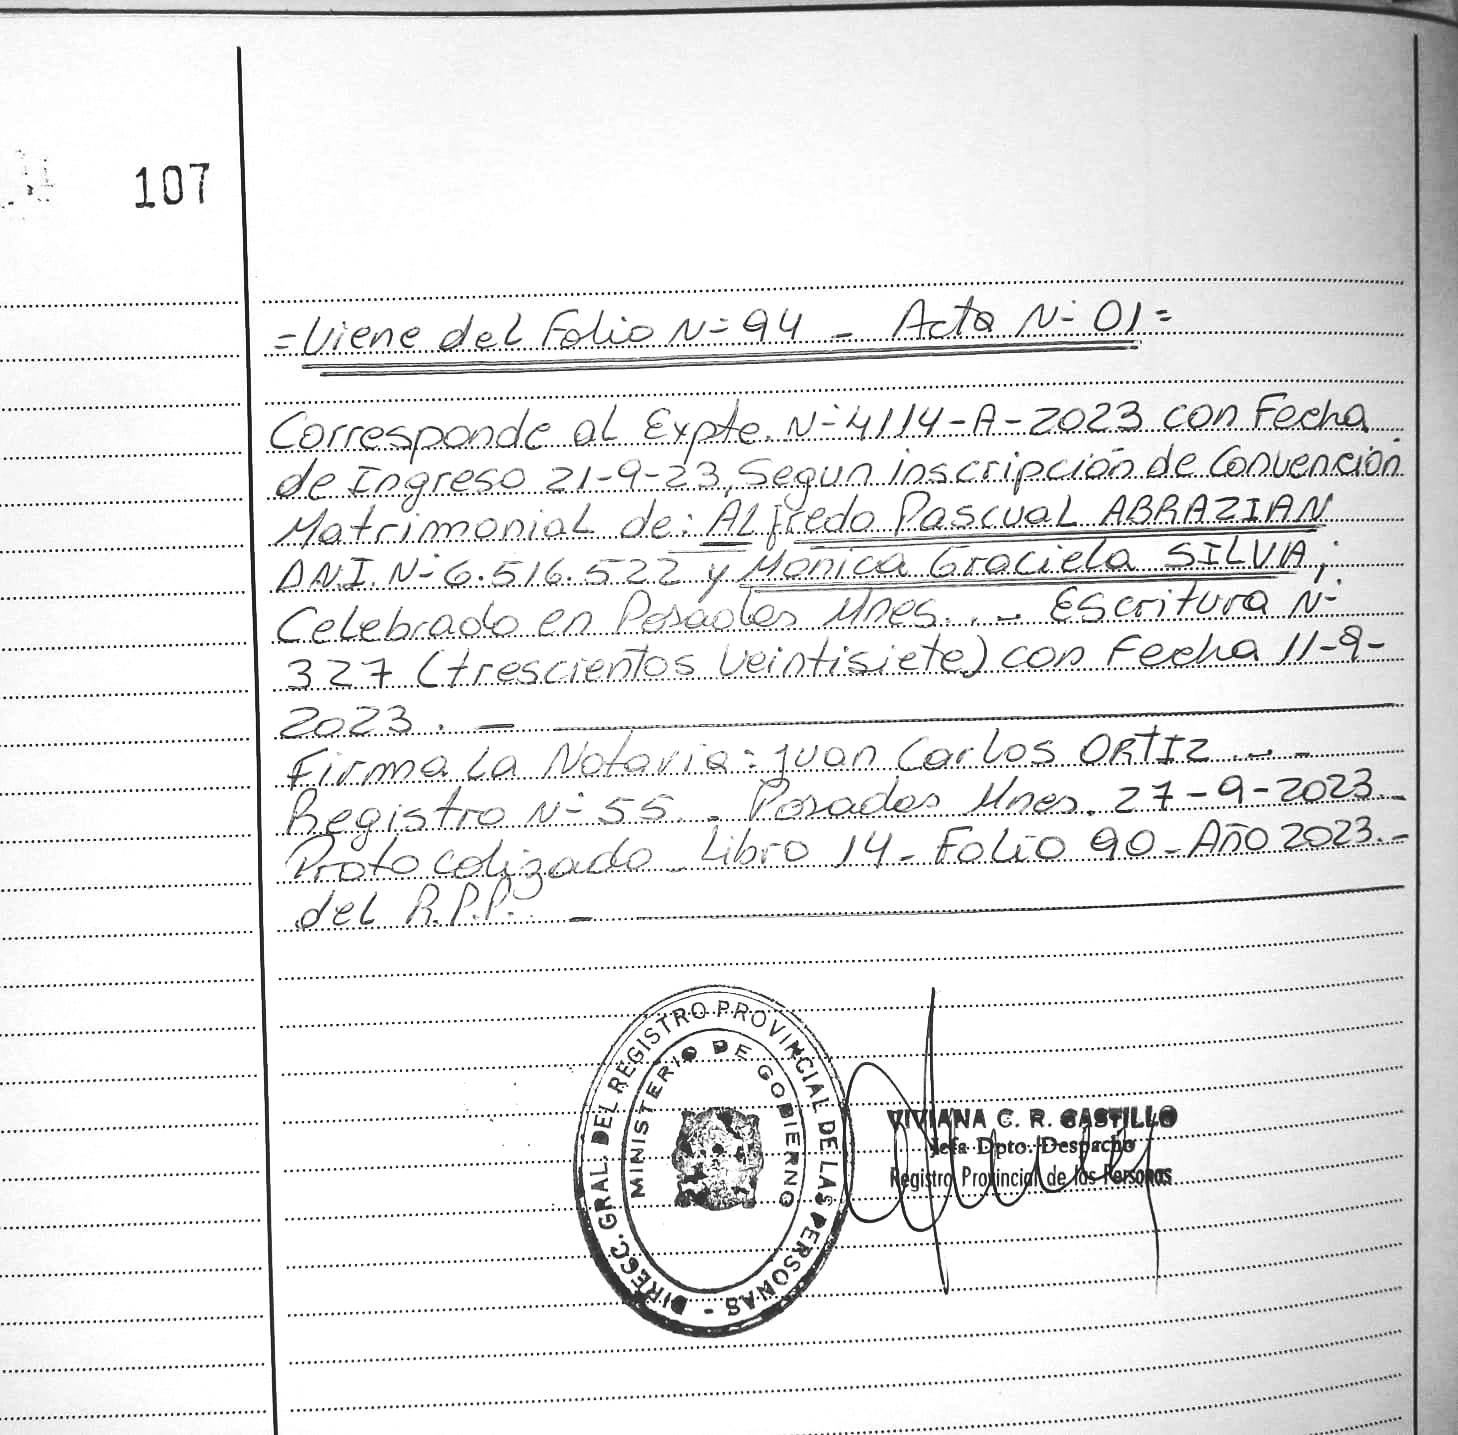 107
=Viene del Folio N= 94 - Acta N- 01=
Corresponde al Expte. N-4114-A-2023 con Fecha
de Ingreso 21-9-23, Segun inscripción de Convención
Matrimonial de: ALfredo Pascual ABRAZIAN
D.N.I. N-6.516.522 y Monica Graciela SILVA;
Celebrado en Posadas Mnes. .- Escritura N-
327 (trescientos veintisiete) con Fecha 11-9-
2023. -
Firma La Notaria: Juan Carlos ORTIZ .- -
Registro N- 55. - Posadas Mnes. 27-9-2023.-
Protocolizado - Libro 14 - Folio 90 - Año 2023.-
del R.P.P. -
DIRECC. GRAL. DEL REGISTRO PROVINCIAL DE LAS PERSONAS -
MINISTERIO DE GOBIERNO
VIVIANA C. R. CASTILLO
Jefa Dpto. Despacho
Registro Provincial de las Personas